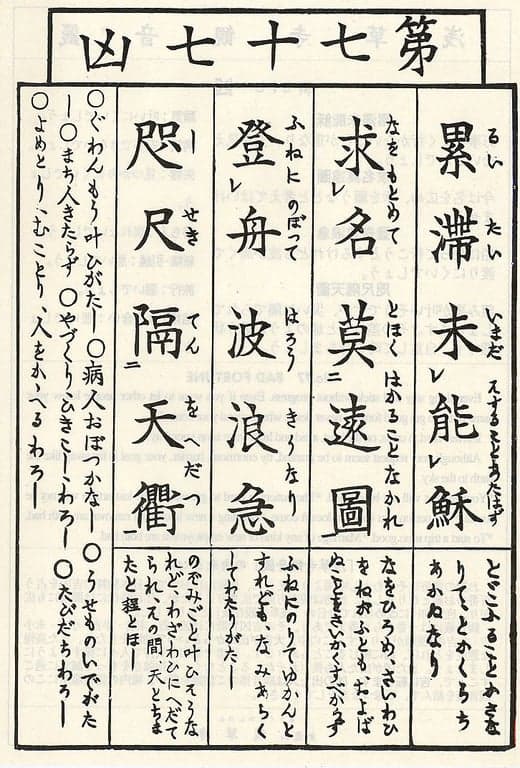 第七十七凶
累滞未レ能レ穌
るい たい いまだ
とどこふることかさな
りてとくらち
あかぬなり
求レ名莫二遠圖一
なをもとめて とほく はかることなかれ
なをひろめさいわひ
をねがふとも およば
登レ舟波浪急
ふねにのぼつて はろう きうなり
ふねにのりてゆかんと
すれども なみあらく
してわたりがたし
咫尺隔二天衢一
しせき てん をへだつ
のぞみごと叶ひそうな
れどわざわひにへだて
られ その間 天とちま
たと程とほし
○ぐわんもう叶ひがたし ○病人おぼつかなし ○うせものいでがた
し ○まち人きたらず ○やづくりひきこしわろし ○たびだちわろし
○よめとりむことり人をかゝるわろし